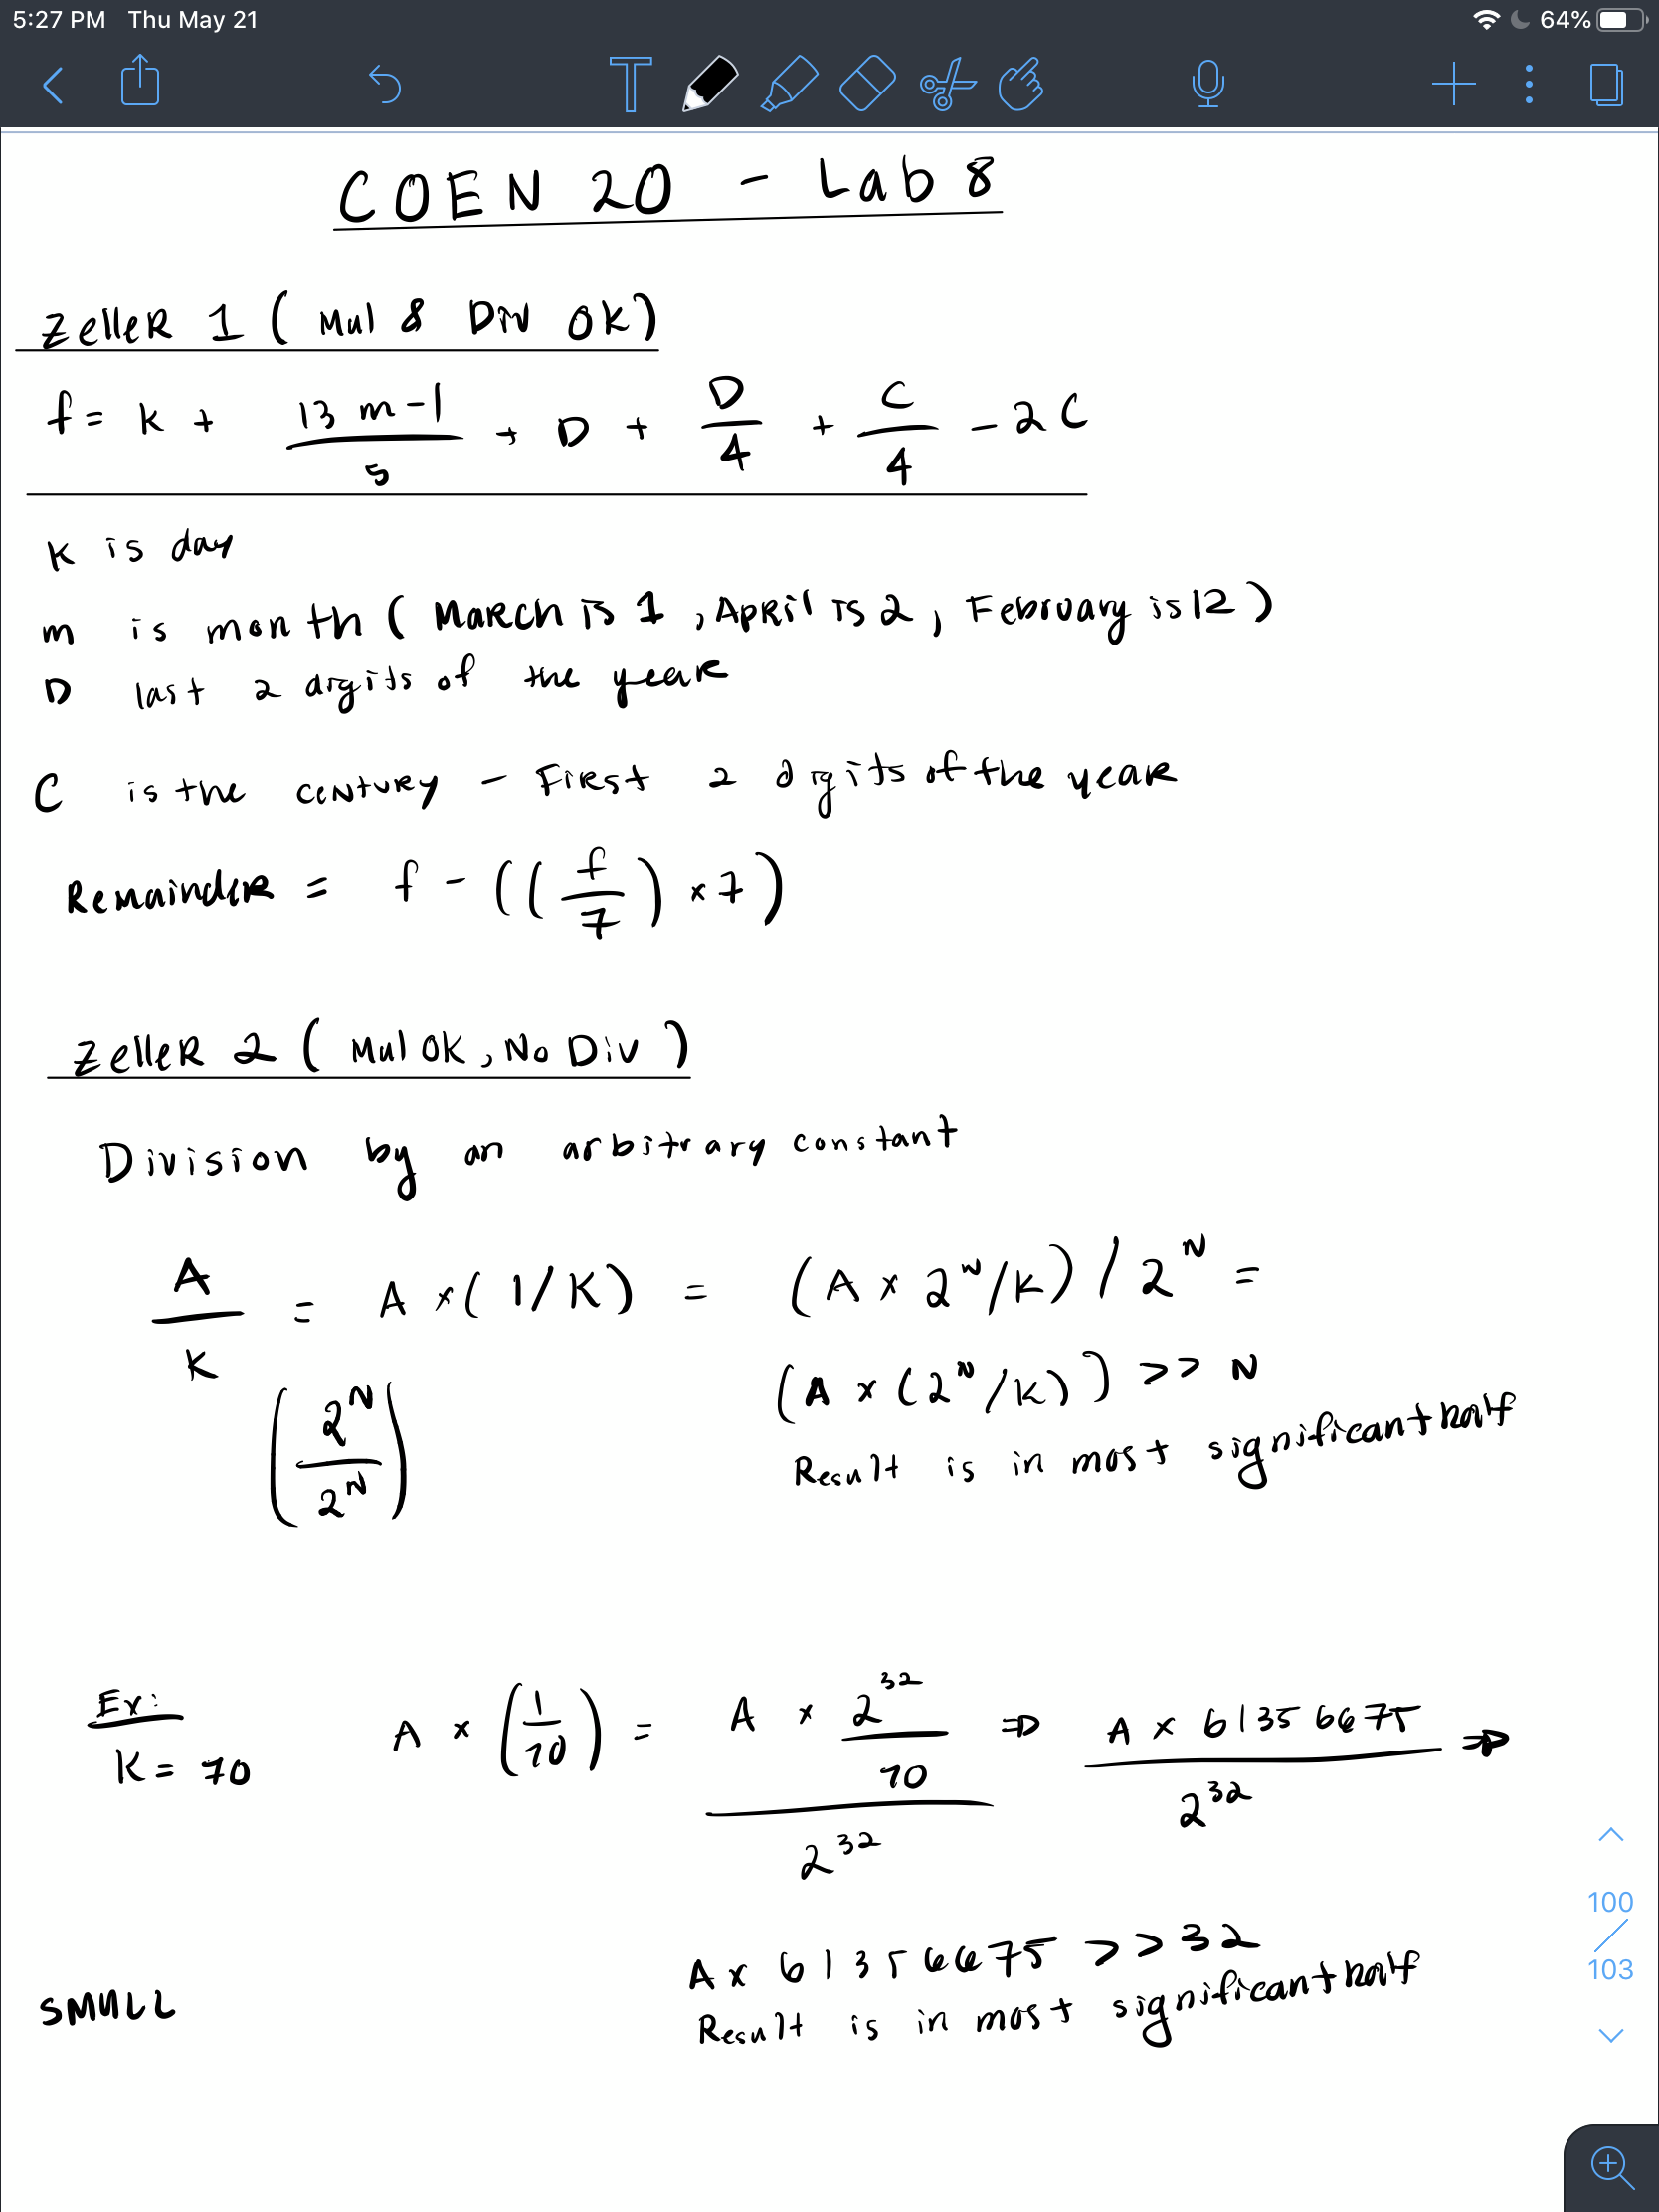 5:27 PM Thu May 21 64%
COEN 20 - Lab 8
Zeller 1 ( Mul & Div OK)
f = k + (13 m - 1)/5 + D + D/4 + C/4 - 2C
K is day
m is month ( March is 1, April is 2, February is 12 )
D last 2 digits of the year
C is the century - First 2 digits of the year
Remainder = f - ((f/7) × 7)
Zeller 2 ( Mul OK, No Div )
Division by an arbitrary constant
A/K = A × ( 1/K) = (A × 2^N/K) / 2^N =
(2^N/2^N) (A × (2^N/K)) >> N
Result is in most significant half
Ex: K = 70 A × (1/70) = (A × 2^32/70)/2^32 ⇒ (A × 61356675)/2^32 ⇒
A × 61356675 >> 32
SMULL Result is in most significant half
100
/
103